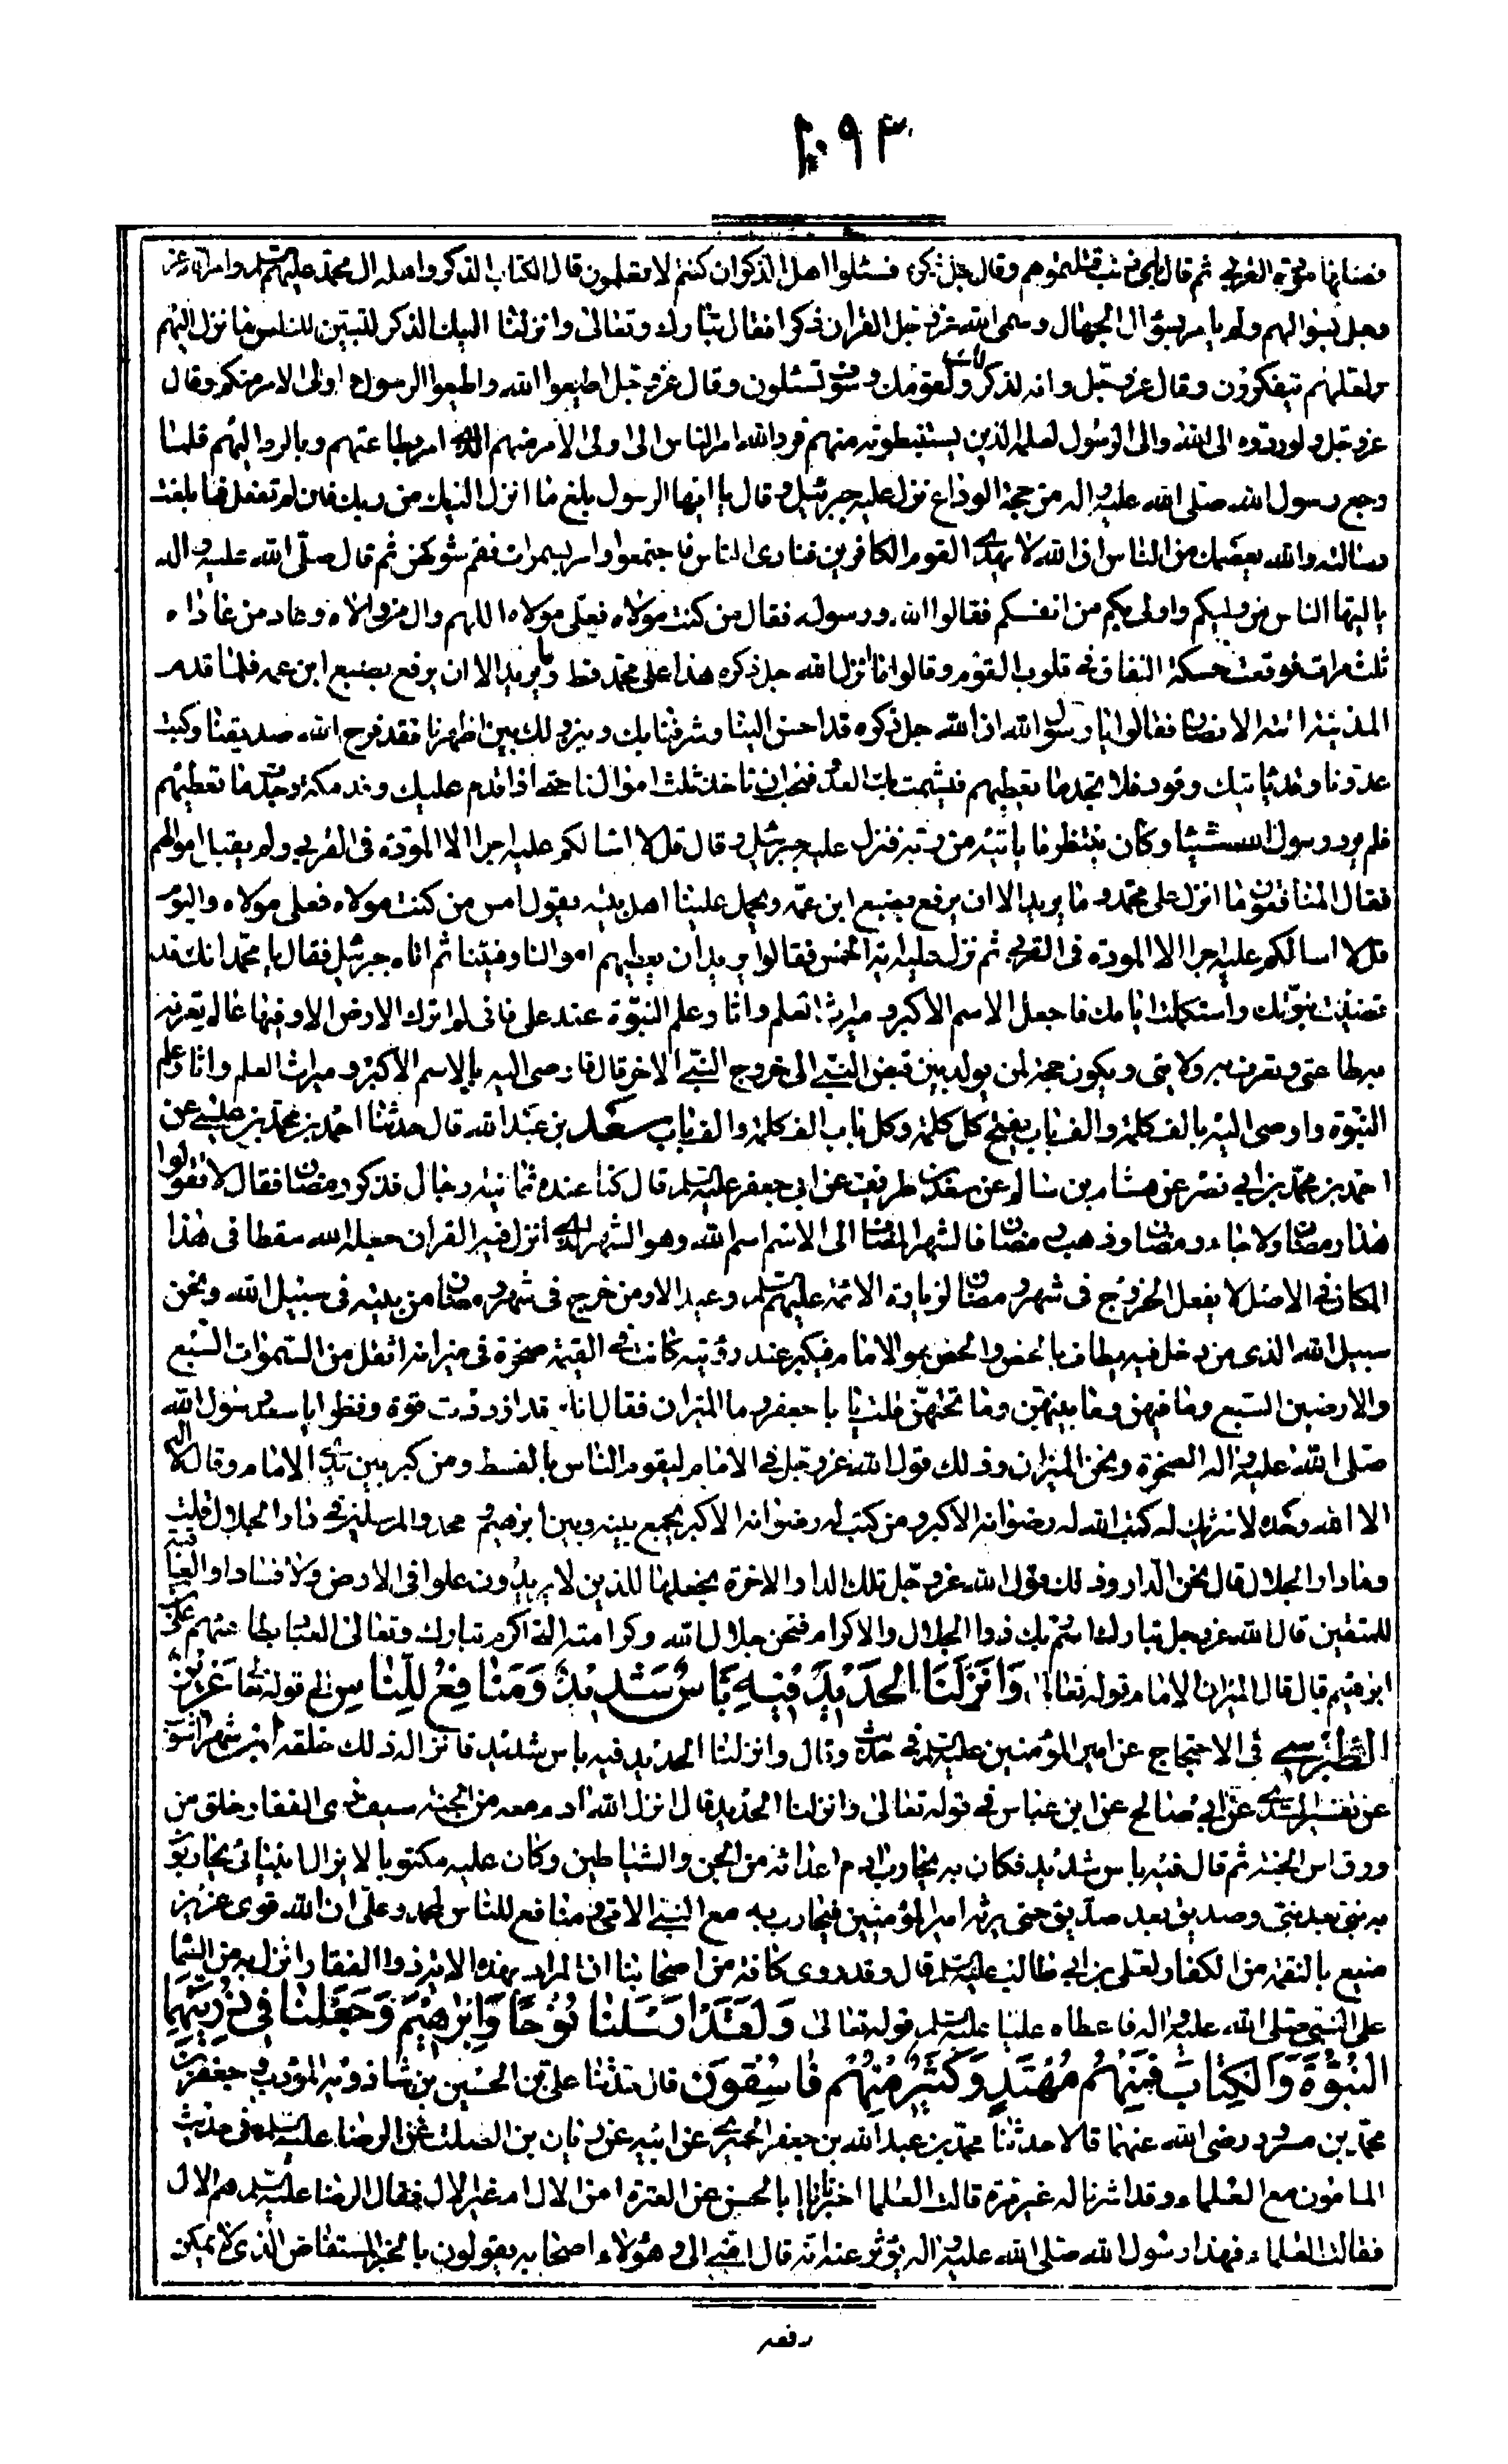 ١٠٩٣
فضانها مودة القربى ثم قال بأي ذنب قتلتموهم وقال جل ذكره فسئلوا اهل الذكر ان كنتم لا تعلمون قال الكتاب الذكر واهله ال محمد عليهم السلم وامر الله عز
وجل بسؤالهم ولم يأمر بسؤال الجهال وسمى الله عز وجل القران ذكرا فقال تبارك وتعالى وانزلنا اليك الذكر لتبين للناس ما نزل اليهم
ولعلهم يتفكرون وقال عز وجل وانه لذكر لك ولقومك وسوف تسئلون وقال عز وجل اطيعوا الله واطيعوا الرسول واولى الامر منكم وقال
عز وجل ولو ردوه الى الله والى الرسول لعلمه الذين يستنبطونه منهم فرد الله امر الناس الى اولى الامر منهم الذى امر بطاعتهم وبالرد اليهم فلما
رجع رسول الله صلى الله عليه واله من حجة الوداع نزل عليه جبرئيل وقال يا ايها الرسول بلغ ما انزل اليك من ربك فان لم تفعل فما بلغت
رسالته والله يعصمك من الناس ان الله لا يهدى القوم الكافرين فنادى الناس فاجتمعوا وامر بسمرات فقم شوكهن ثم قال صلى الله عليه واله
يا ايها الناس من وليكم واولى بكم من انفسكم فقالوا الله ورسوله فقال من كنت مولاه فعلى مولاه اللهم وال من والاه وعاد من عاداه
ثلث مرات فوقعت حسكة النفاق فى قلوب القوم وقالوا ما انزل الله جل ذكره هذا على محمد قط وما يريد الا ان يرفع بضبع ابن عمه فلما قدم
المدينة اتته الانصار فقالوا يا رسول الله ان الله جل ذكره قد احسن الينا وشرفنا بك وبنزولك بين اظهرنا فقد فرح الله صديقنا وكبت
عدونا وقد ياتيك وفود فلا تجد ما تعطيهم فيشمت بك العدو فنحب ان تاخذ ثلث اموالنا حتى اذا قدم عليك وفد مكة وجدت ما تعطيهم
فلم يرد رسول الله شيئا وكان ينتظر ما ياتيه من ربه فنزل عليه جبرئيل وقال قل لا اسالكم عليه اجرا الا المودة فى القربى ولم يقبل اموالهم
فقال المنافقون ما انزل على محمد وما يريد الا ان يرفع بضبع ابن عمه ويحمل علينا اهل بيته يقول امس من كنت مولاه فعلى مولاه واليوم
قل لا اسالكم عليه اجرا الا المودة فى القربى ثم نزل عليه اية الخمس فقالوا يريد ان يعطيهم اموالنا وفيئنا ثم اتاه جبرئيل فقال يا محمد انك قد
قضيت نبوتك واستكملت ايامك فاجعل الاسم الاكبر وميراث العلم واثار علم النبوة عند على فانى لم اترك الارض الا وفيها عالم يعرف به
به طاعتى وتعرف به ولايتى ويكون حجة لمن يولد بين قبض النبى الى خروج النبى الاخر قال فاوصى اليه بالاسم الاكبر وميراث العلم واثار علم
النبوة واوصى اليه بالف كلمة والف باب يفتح كل كلمة وكل باب الف كلمة والف باب سعد بن عبد الله قال حدثنا احمد بن محمد بن عيسى عن
احمد بن محمد بن ابى نصر عن هشام بن سالم عن سعد بن طريف عن ابى جعفر عليه السلم قال كنا عنده ثمانية رجال فذكر رمضان فقال لا تقولوا
هذا رمضان ولا جاء رمضان وذهب رمضان فالشهر المضاف الى الاسم اسم الله وهو الشهر الذى انزل فيه القران جعله الله سقطا فى هذا
المكان فى الاصل لا يفعل الخروج فى شهر رمضان لزيارة الائمة عليهم السلم وعيد الا ومن خرج فى شهر رمضان من بيته فى سبيل الله ونحن
سبيل الله الذى من دخل فيه يطاف بالحصن والحصن هو الامام فيكبر عند رؤيته كانت له يوم القيمة صخرة فى ميزانه اثقل من السموات السبع
والارضين السبع وما فيهن وما بينهن وما تحتهن قلت يا با جعفر وما الميزان فقال انك قد ازددت قوة ونظرا يا سعد رسول الله
صلى الله عليه واله الصخرة ونحن الميزان وذلك قول الله عز وجل فى الامام ليقوم الناس بالقسط ومن كبر بين يدى الامام وقال لا اله
الا الله وحده لا شريك له كتب الله له رضوانه الاكبر ومن كتب له رضوانه الاكبر يجمع بينه وبين ابرهيم ومحمد والمرسلين فى دار الجلال قلت
وما دار الجلال قال نحن الدار وذلك قول الله عز وجل تلك الدار الاخرة نجعلها للذين لا يريدون علوا فى الارض ولا فسادا والعاقبة
للمتقين قال الله عز وجل تبارك اسم ربك ذوا الجلال والاكرام فنحن جلال الله وكرامته التى اكرم تبارك وتعالى العباد بطاعتهم على بن
ابرهيم قال قال الميزان الامام قوله تعالى وَاَنْزَلْنَا الْحَدِيْدَ فِيْهِ بَاْسٌ شَدِيْدٌ وَمَنَافِعُ لِلنَّاسِ الى قوله تعا عَزِيْزٌ
الطبرسى فى الاحتجاج عن امير المؤمنين عليه السلم فى حديث وقال وانزلنا الحديد فيه باس شديد فانزاله ذلك خلقه ابن شهراشوب
عن تفسير السدى عن ابى صالح عن ابن عباس فى قوله تعالى وانزلنا الحديد قال انزل الله ادم ومعه من الجنة سيف ذى الفقار خلق من
ورق اس الجنة ثم قال فيه باس شديد فكان به يحارب ادم اعدائه من الجن والشياطين وكان عليه مكتوبا لا يزال انبيائى يحاربون
به نبى بعد نبى وصديق بعد صديق حتى يرثه امير المؤمنين فيحارب به مع النبى الامى ومنافع للناس لمحمد وعلى ان الله قوى عزيز
منيع بالنقمة من الكفار لعلى بن ابى طالب عليه السلم قال وقد روى كافة من اصحابنا ان المراد بهذه الاية ذوا الفقار انزل به من السماء
على النبى صلى الله عليه واله فاعطاه عليا عليه السلم قوله تعالى وَلَقَدْ اَرْسَلْنَا نُوْحًا وَاِبْرٰهِيْمَ وَجَعَلْنَا فِى ذُرِّيَّتِهِمَا
النُّبُوَّةَ وَالْكِتَابَ فَمِنْهُمْ مُهْتَدٍ وَكَثِيْرٌ مِنْهُمْ فَاسِقُوْنَ قال حدثنا على بن الحسين بن شاذويه المؤدب وجعفر بن
محمد بن مسرور رضى الله عنهما قالا حدثنا محمد بن عبد الله بن جعفر الحميرى عن ابيه عن ريان بن الصلت عن الرضا عليه السلم فى حديث
المامون مع العلماء وقد اشرنا له غير مرة قالت العلما اخبرنا يا ابا الحسن عن العترة امن الال ام غير الال فقال الرضا عليه السلم هم الال
فقالت العلماء فهذا رسول الله صلى الله عليه واله يؤثر عنه انه قال امتى الى وهؤلاء اصحابه يقولون بالخبر المستفاض الذى لا يمكن
دفعه